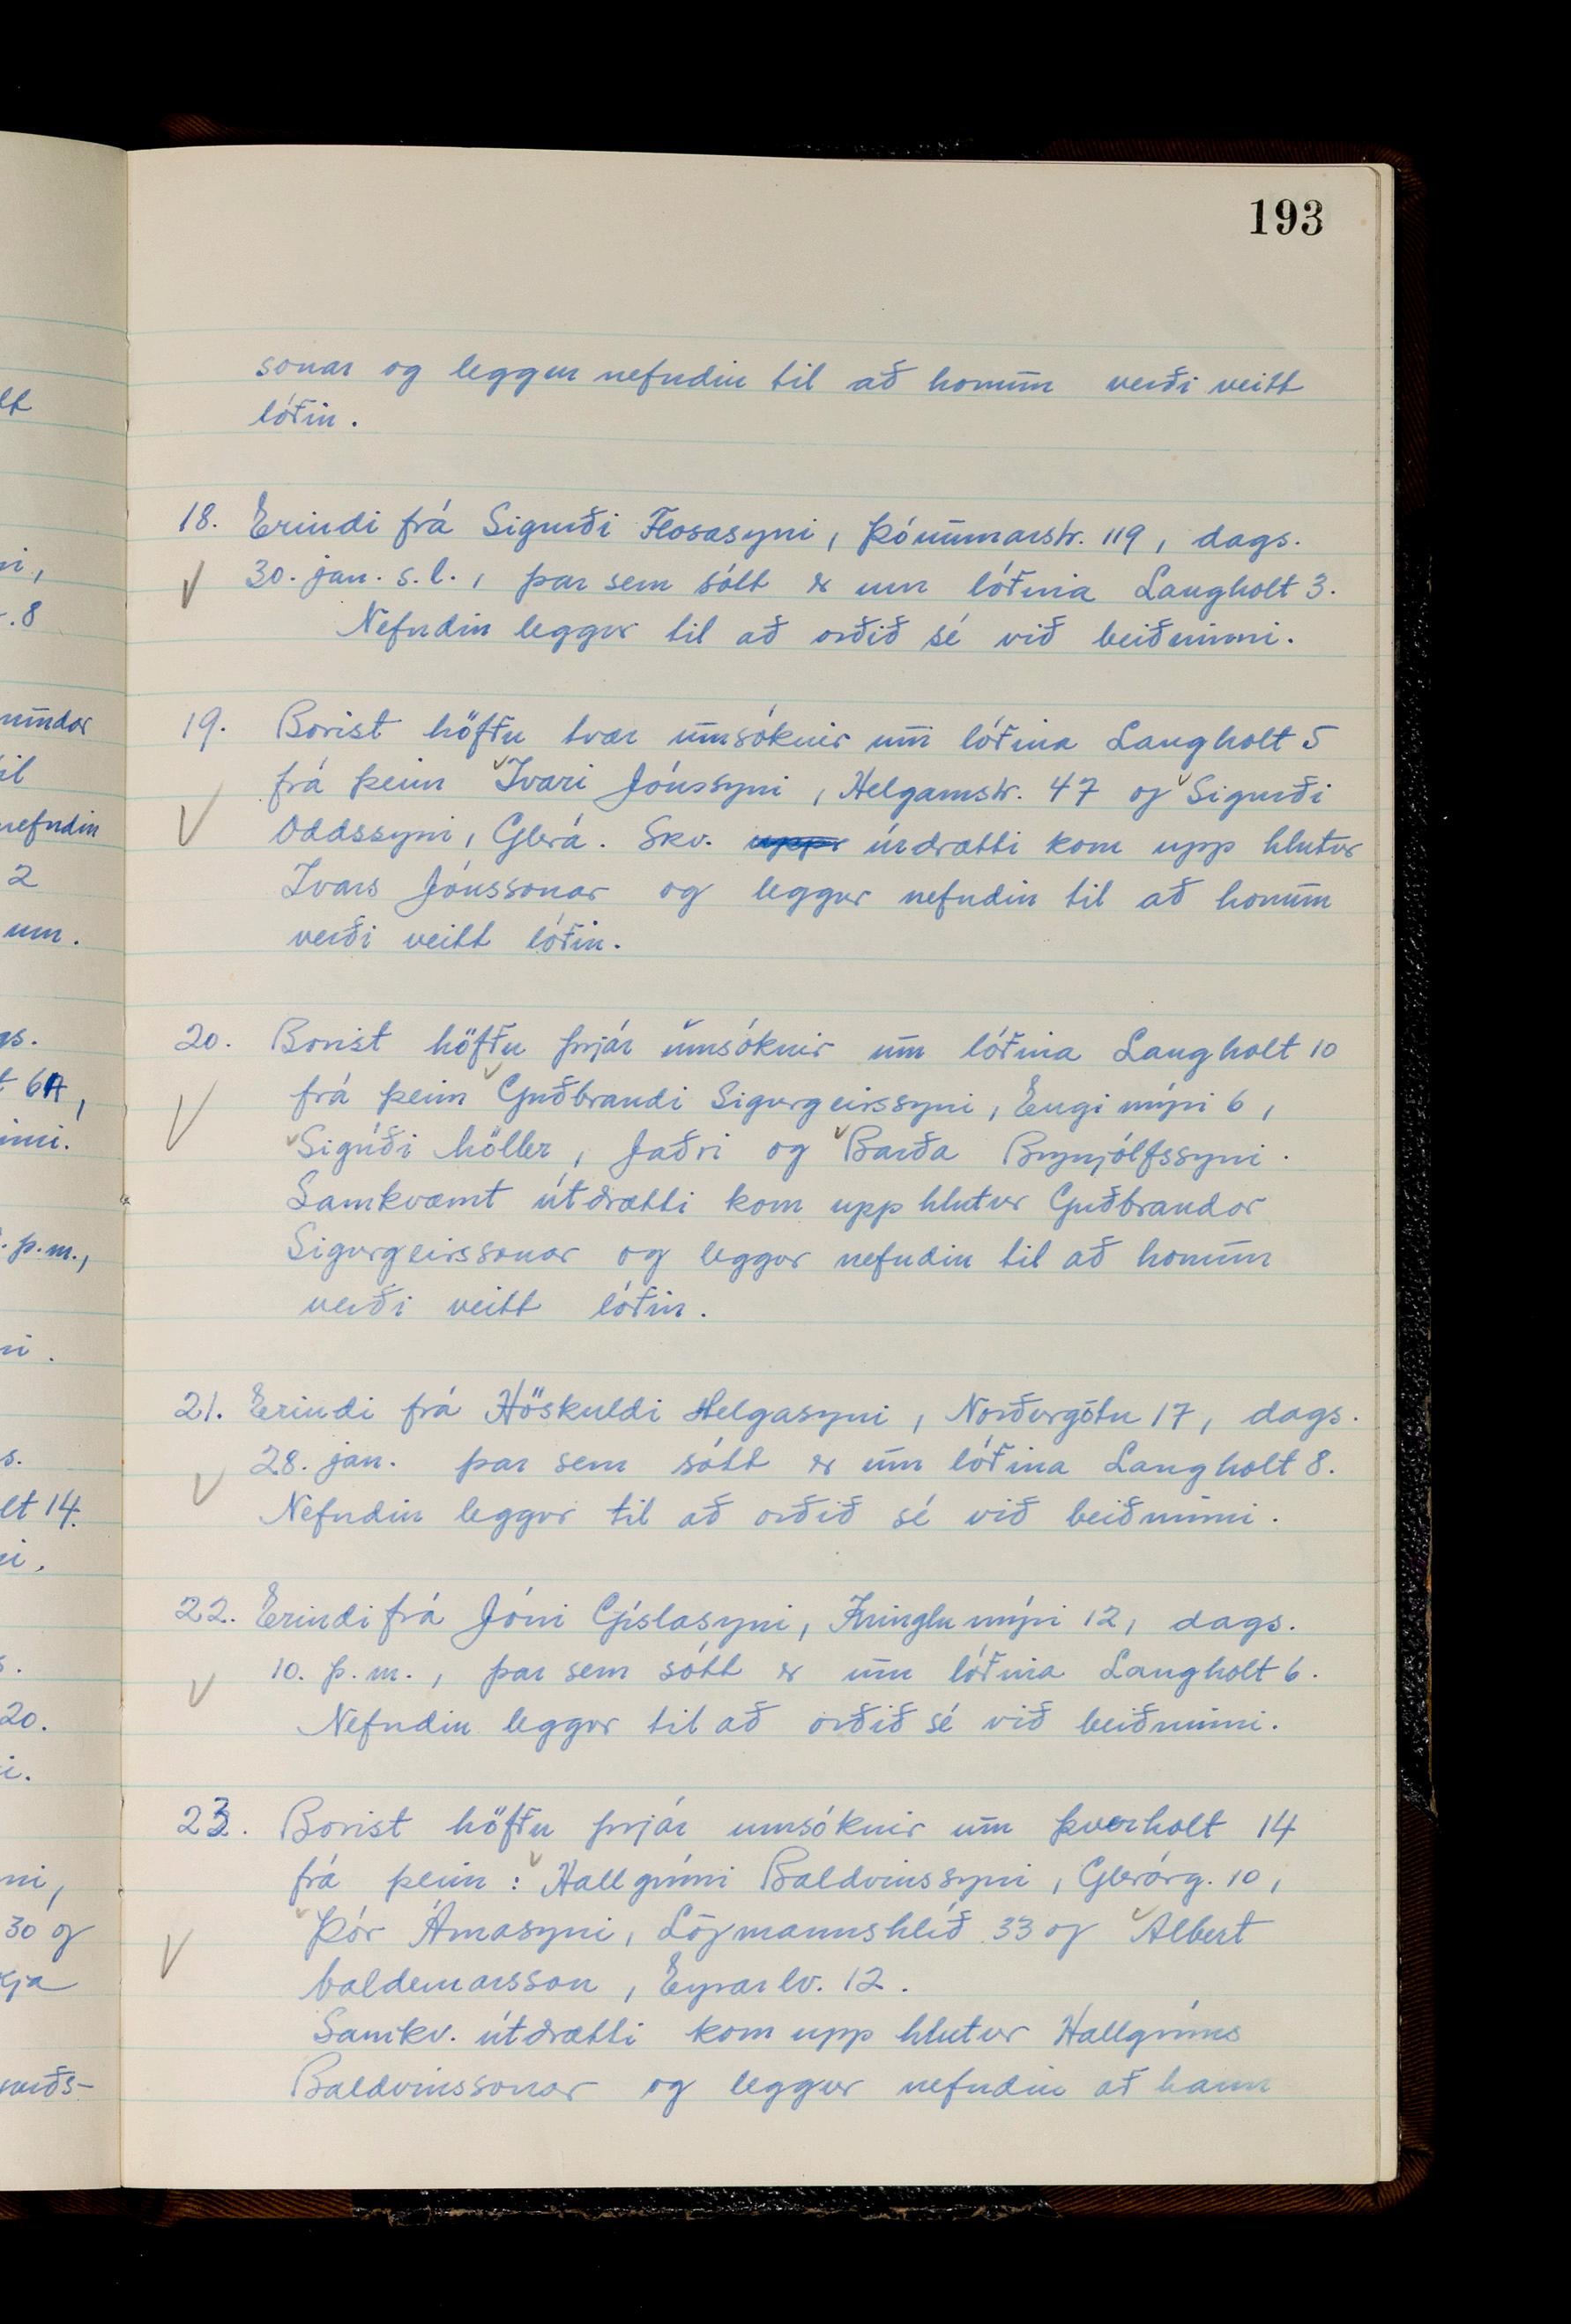 193
sonar og leggur nefndin til að honum verði veitt
lóðin.
18. Erindi frá Sigurði Flosasyni, Þórunnarstr. 119, dags.
30. jan. s.l., þar sem sótt er um lóðina Langholt 3.
Nefndin leggur til að orðið sé við beiðninni.
19. Borist höfðu tvær umsóknir um lóðina Langholt 5
frá þeim Ivari Jónssyni, Helgamstr. 47 og Sigurði
Oddssyni, Glerá. Skv. úrdrætti kom upp hlutur
Ivars Jónssonar og leggur nefndin til að honum
verði veitt lóðin.
20. Borist höfðu þrjár umsóknir um lóðina Langholt 10
frá þeim Guðbrandi Sigurgeirssyni, Engimýri 6,
Sigurði Möller, Jaðri og Barða Brynjólfssyni.
Samkvæmt útdrætti kom upp hlutur Guðbrandar
Sigurgeirssonar og leggur nefndin til að honum
verði veitt lóðin.
21. Erindi frá Höskuldi Helgasyni, Norðurgötu 17, dags.
28. jan. þar sem sótt er um lóðina Langholt 8.
Nefndin leggur til að orðið sé við beiðninni.
22. Erindi frá Jóni Gíslasyni, Kringlumýri 12, dags.
10. þ.m., þar sem sótt er um lóðina Langholt 6.
Nefndin leggur til að orðið sé við beiðninni.
23. Borist höfðu þrjár umsóknir um Þverholt 14
frá þeim: Hallgrími Baldvinssyni, Glerárg. 10,
Þór Árnasyni, Lögmannshlíð 33 og Albert
Valdemarsson, Eyrarlv. 12.
Samkv. útdrætti kom upp hlutur Hallgríms
Baldvinssonar og leggur nefndin að hann